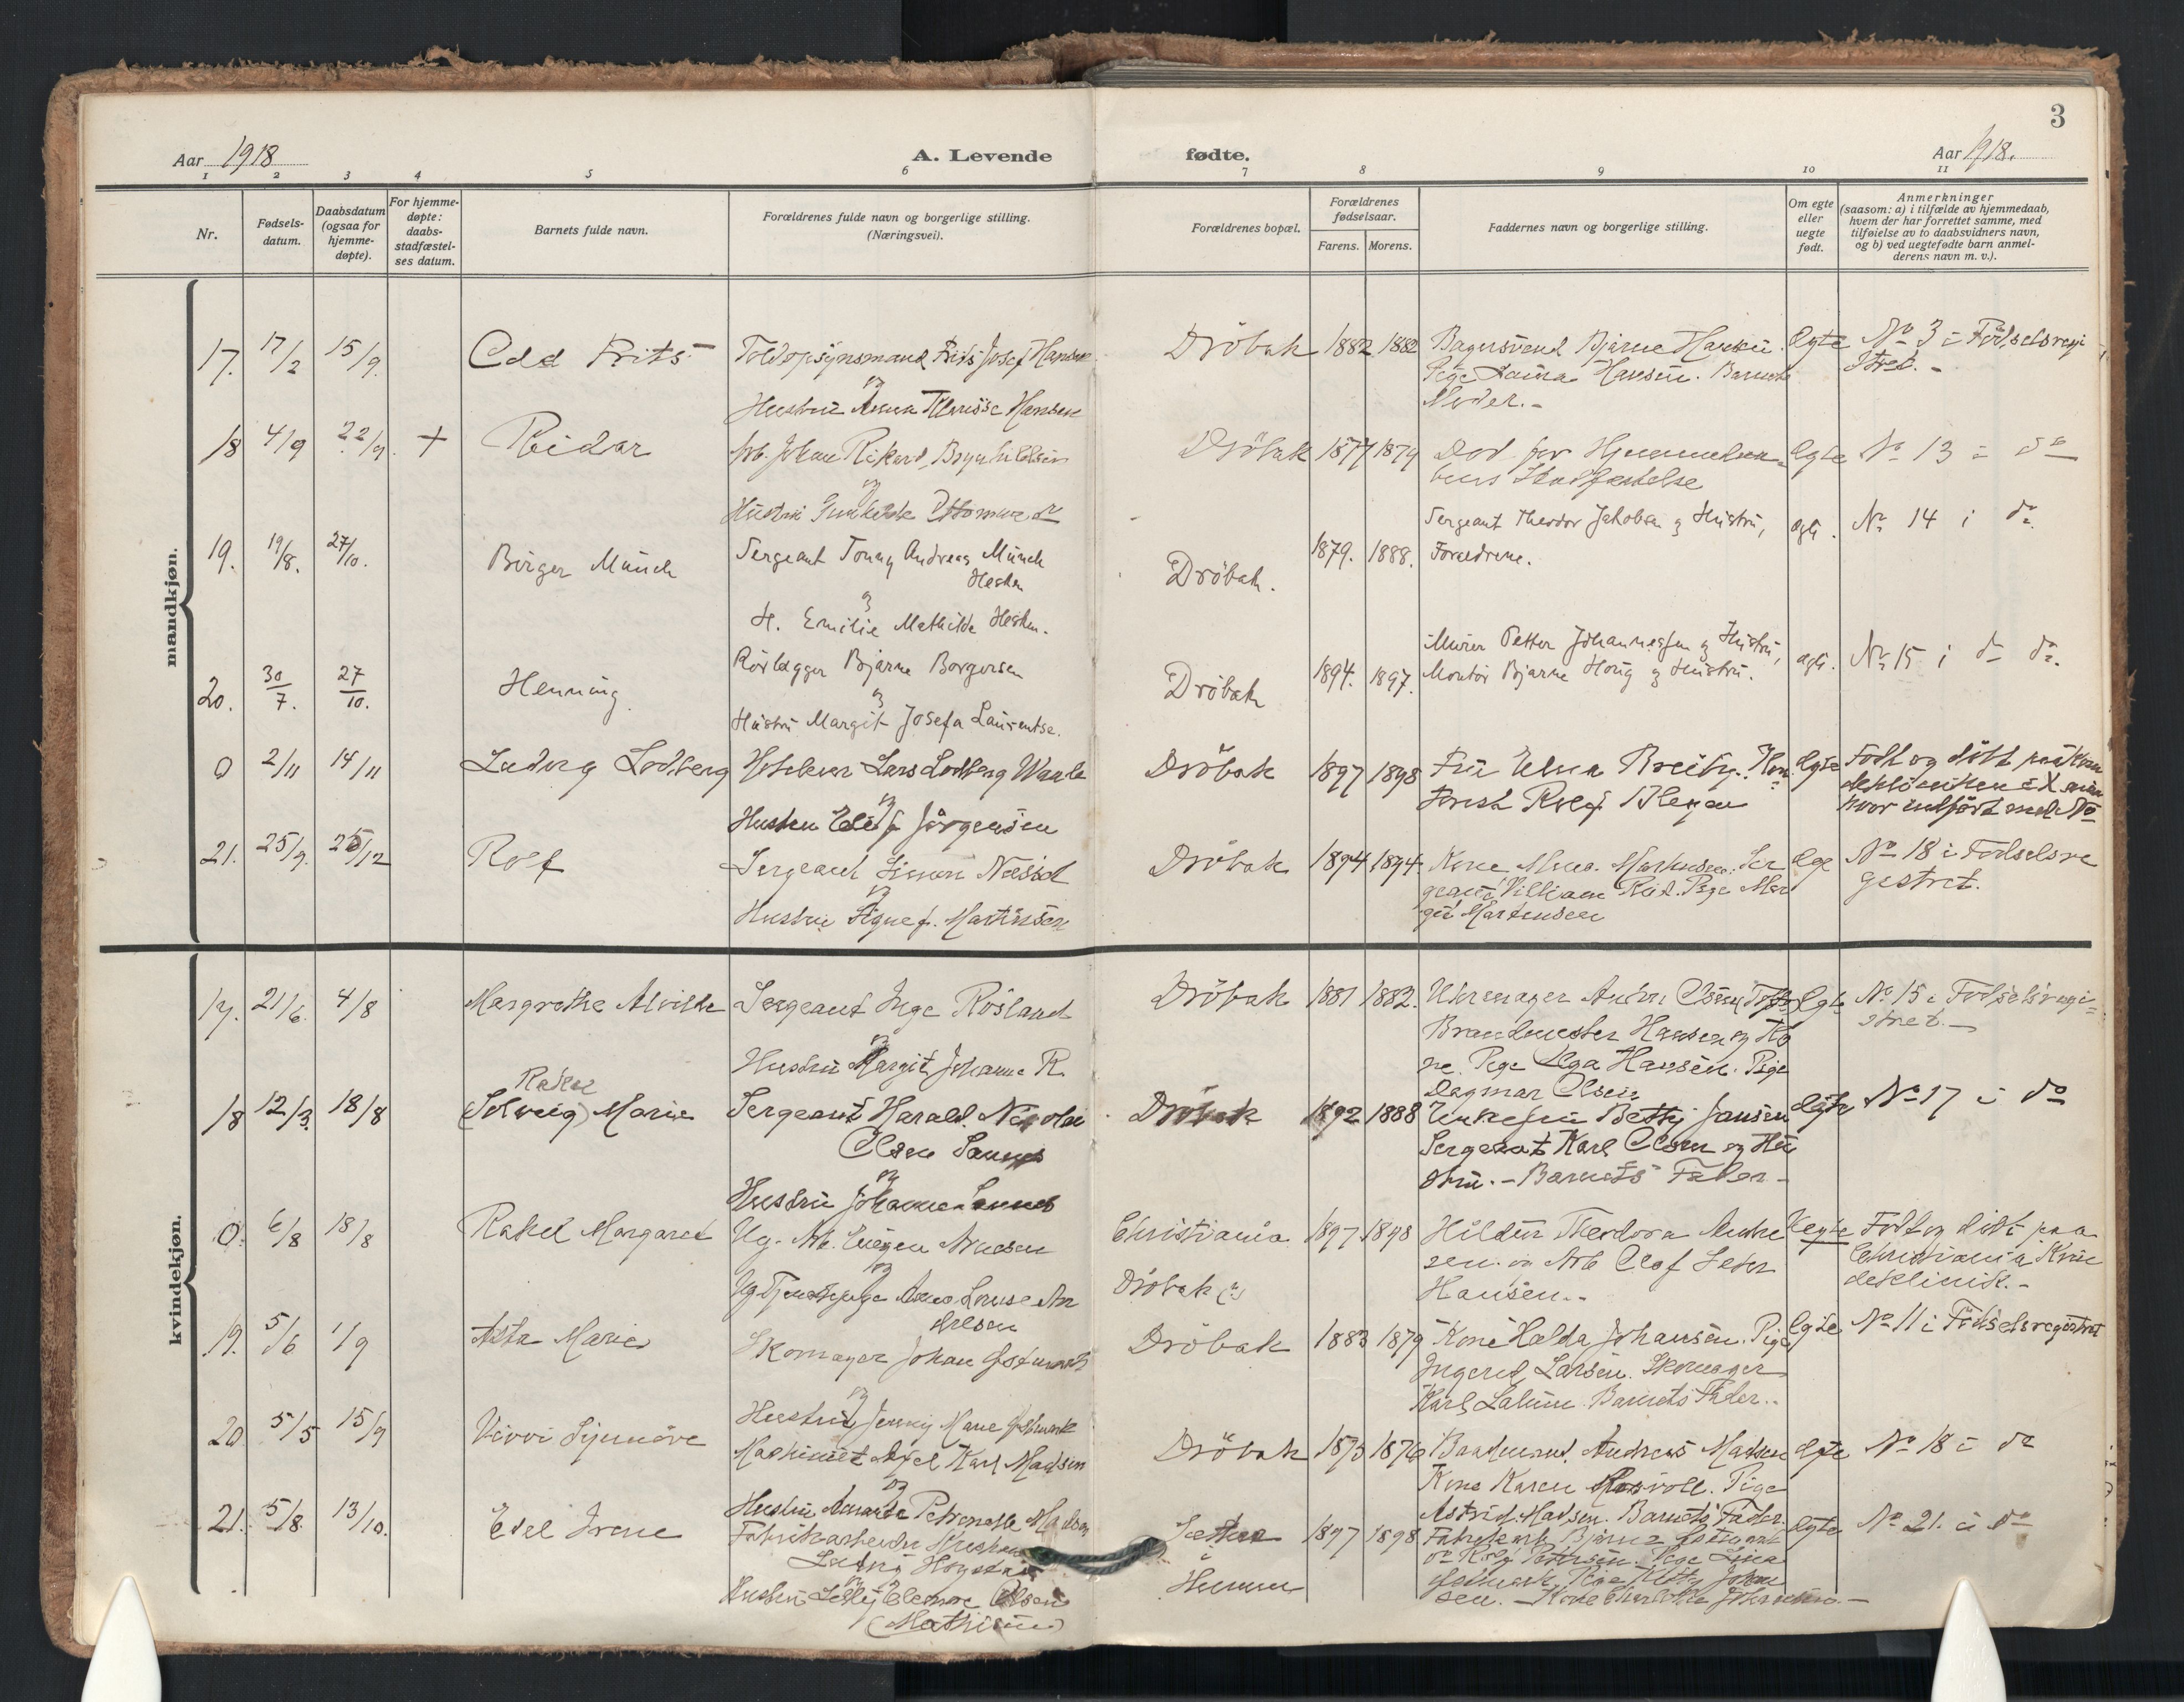 3
Aar 1918
A. Levende
fødte.
Aar 1918.
1 2 3 4 5 6 7 8 9 10 11
Nr.
Fødsels-
datum.
Daabsdatum
(ogsaa for
hjemme-
døpte).
For hjemme-
døpte:
daabs-
stadfæstel-
ses datum.
Barnets fulde navn.
Forældrenes fulde navn og borgerlige stilling.
(Næringsvei).
Forældrenes bopæl.
Forældrenes
fødselsaar.
Farens. Morens.
Faddernes navn og borgerlige stilling.
Om egte
eller
uegte
født.
Anmerkninger
(saasom: a) i tilfælde av hjemmedaab,
hvem der har forrettet samme, med
tilføielse av to daabsvidners navn,
og b) ved uegtefødte barn anmel-
derens navn m. v.).
mandkjøn.
17. 17/2 15/9. Odd Frits Toldopsynsmand Frits Josef Hansen
og
Hustru Hansen
Dröbak 1882 1882
Bagersvend Bjarne Hansen. Egte
Pige Hansen. Barnets
Moder.-
No 3 i Födselsregi
stret. -
18 4/9 22/9. + Reidar
Arb. Johan Rikard
og
Hustru
Dröbak 1877 1879 Död før Hjemmedaa-
bens Stadfæstelse Egte No 13 i do
19. 19/8. 27/10. Birger Münch
Sergeant Tonny Andreas Münch
Hesten
og
H. Emilie Mathilde Hesten.
Dröbak. 1879. 1888.
Sergeant Theodor Jakobsen og Hustru,
Forældrene.
egte. No 14 i do.
20. 30/7. 27/10. Henning
Rörlægger Bjarne Borgersen
og
Hustru Margit Josefa Laurentse.
Dröbak 1894. 1897.
Murer Petter Johannessen og Hustru,
Montör Bjarne Houg og Hustru.
egte. No 15 i do do.
0 2/11 14/11 Ludvig Lodberg
Lars Lodberg
og
Hustru f. Jörgensen
Dröbak 1897 1898 Fru Elna Breiby.
Rolf
Egte Födt og döbt paa
hvor indfört med No
21. 25/9. 26/12 Rolf
Sergeant Simon
og
Hustru Signe f. Martinsen
Dröbak 1894 1894 Kone Ser
geant William Pige Mar
git Martinsen
No 18 i Födselsre
gistret.
kvindekjøn.
17. 21/6. 4/8 Margrethe Alvilde
Sergeant Inge Rösland
og
Hustru Margit Johanne R.
Dröbak 1881 1882. Uhrmager Anton Olsen
Brandmester Hansen og Ko
ne. Pige Olga Hansen. Pige
Dagmar Olsen
Egte No 15 i Födselsregi-
stret. -
18 12/3. 18/8 Rakel
(Solveig) Marie
Sergeant Harald Nicolai
Olsen Sannes
og
Hustru Johanne Sannes
Dröbak 1892 1888 Enkefru Betty Jansen
Sergeant Karl Olsen og Hu
stru. - Barnets Fader -
Egte No 17 i do
0. 6/8 18/8 Rakel Margaret
Ug. Arb.
og
Ug Tjenestepige Louise An
dresen
Christiania
Dröbak (?)
1897 1898 Hildur Theodora Andre
sen. og Arb Olof Peder
Hansen.-
Uegte Födt og döbt paa
Christiania Kvin
deklinik.-
19. 5/6 1/9 Asta Marie
Skomager Johan
og
Hustru Jenny Marie
Dröbak 1883 1879 Kone Halda Johansen. Pige
Ingerid Larsen. Skomager
Karl Barnets Fader.-
Egte No 11 i Födselsregistret
20 5/5 15/9 Vivvi Synnöve
Maskinist Axel Karl Madsen
og
Hustru Petronelle Madsen
Dröbak 1873 1876 Baadmand Andreas Madsen
Kone Karen Pige
Astrid Madsen. Barnets Fader.
Egte No 18 i do
21. 5/8. 13/10. Edel Irene
Fabrikarbeider
Ludvig
og
Hustru Olsen
(Mathisen)
Hurum
1897 1898 Fabrikarb. Bjarne
og Rolf Pettersen. Pige
Pige Johan
sen. - Kone
Egte No 21. i do